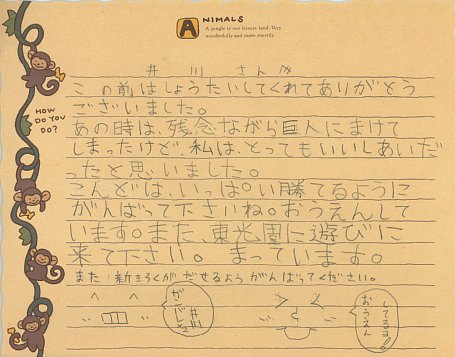 ANIMALS
A jungle is our leisure land. Very
wonderfully and more merrily.
HOW
DO YOU
DO?
井川さんへ
この前はしょうたいしてくれてありがとう
ございました。
あの時は、残念ながら巨人にまけて
しまったけど、私は、とってもいいしあいだ
ったと思いました。
こんどは、いっぱい勝てるように
がんばって下さいね。おうえんして
います。また、東光園に遊びに
来て下さい。まっています。
また新記ろくがだせるようがんばってください。
井川
ガンバレ
おうえん
してるヨ!